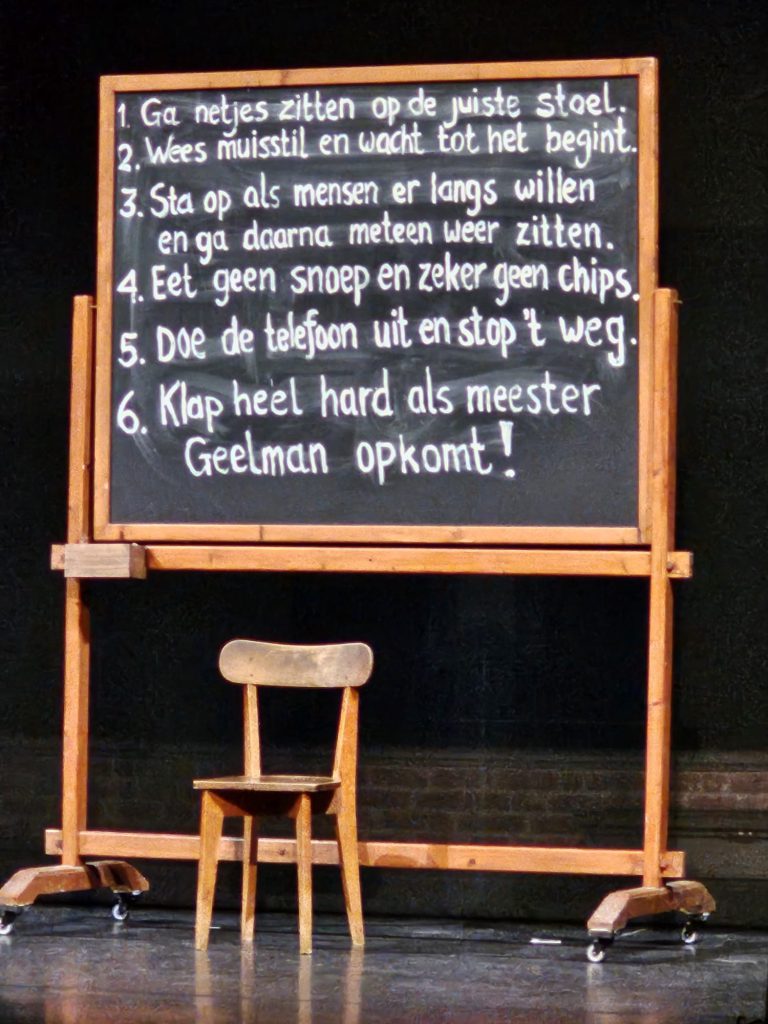 1. Ga netjes zitten op de juiste stoel.
2. Wees muisstil en wacht tot het begint.
3. Sta op als mensen er langs willen
en ga daarna meteen weer zitten.
4. Eet geen snoep en zeker geen chips.
5. Doe de telefoon uit en stop 't weg.
6. Klap heel hard als meester
Geelman opkomt!